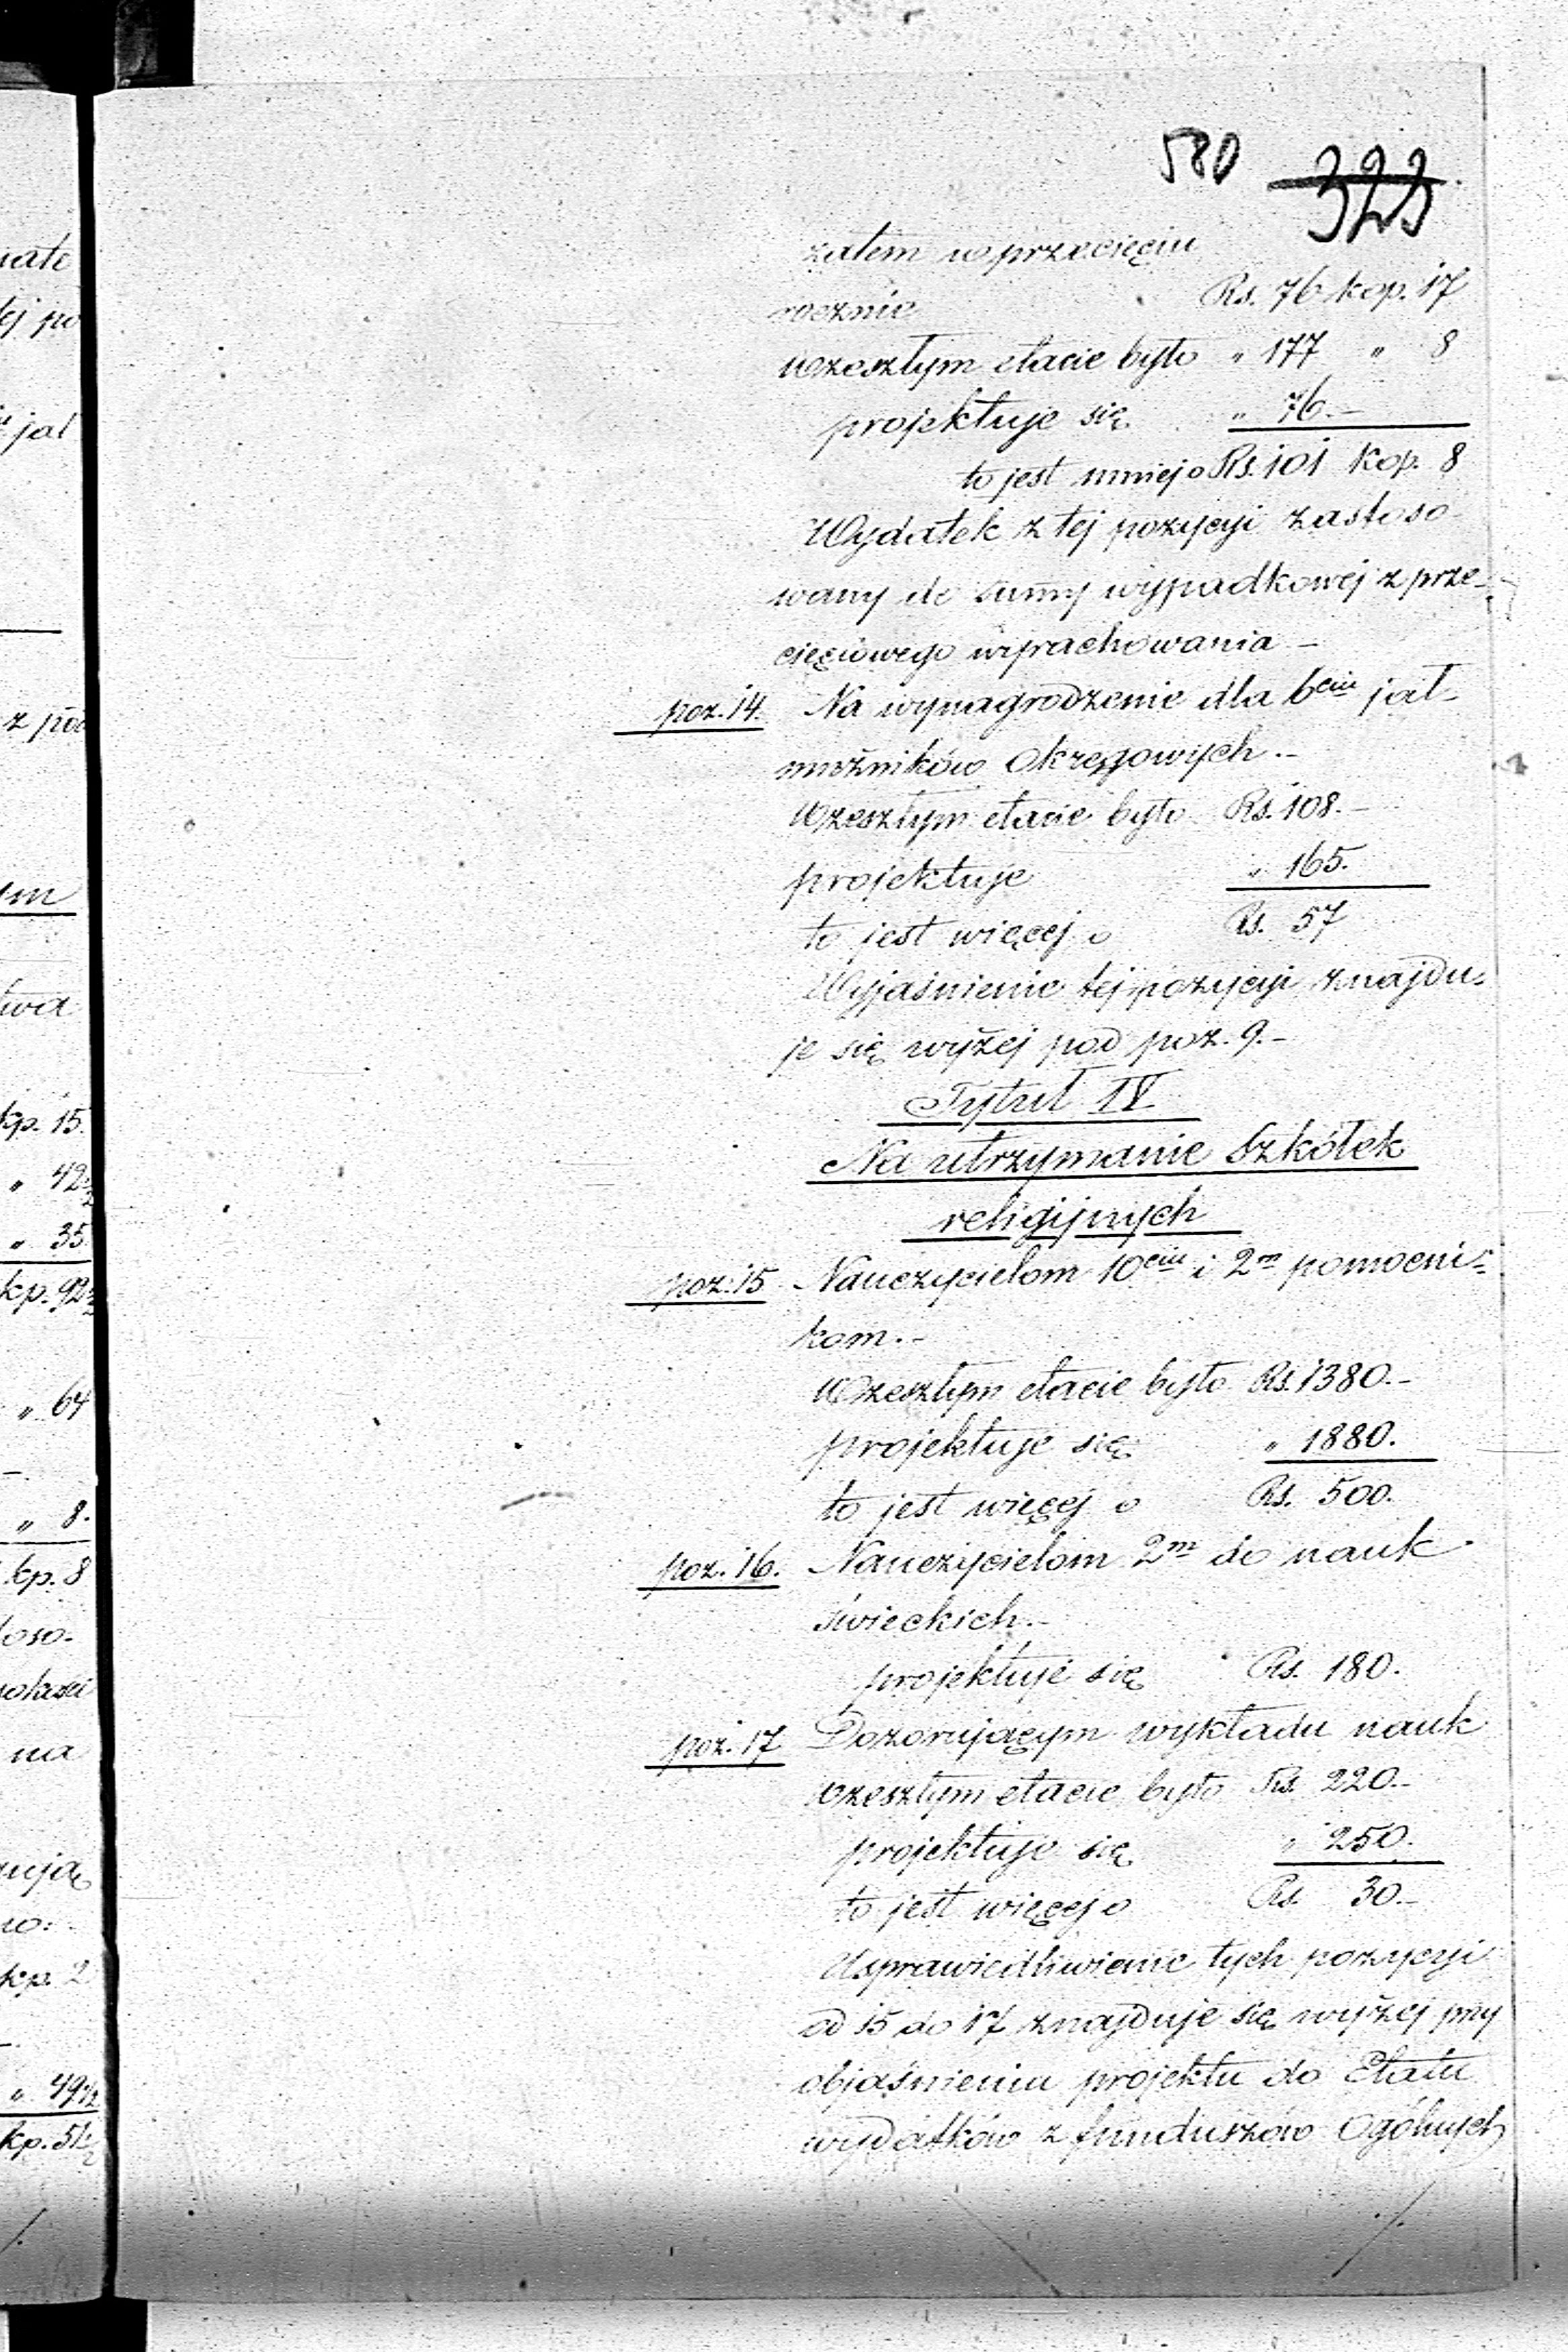 580 323
zatem w przecięciu
rocznie Rs. 76 kop. 17
wzeszłym etacie było " 177 " 8
projektuje się " 76.-
to jest mniej o Rs. 101 kop. 8
Wydatek z tej pozycyi zastoso-
wany do summy wypadkowej z prze-
cięciowego wyrachowania -
poz. 14. Na wynagrodzenie dla 6ciu jał-
mużników Okręgowych.-
Wzeszłym etacie było Rs. 108.-
projektuje " 165.
to jest więcej o Rs. 57
Wyjaśnienie tej pozycyi znajdu-
je się wyżej pod poz. 9.-
Tytuł IV
Na utrzymanie Szkółek
religijnych
poz. 15 Nauczycielom 10ciu i 2m pomocni-
kom.-
Wzeszłym etacie było Rs. 1380.-
projektuje się " 1880.
to jest więcej o Rs. 500.
poz. 16. Nauczycielom 2m do nauk
świeckich.-
projektuje się Rs. 180.
poz. 17 Dozorującym wykładu nauk
wzeszłym etacie było Rs. 220.-
projektuje się " 250.
to jest więcej o Rs. 30.-
Usprawiedliwienie tych pozycyi
od 15 do 17 znajduje się wyżej przy
objaśnieniu projektu do Etatu
wydatków z funduszów Ogólnych
kp. 15.
" 35.
" 64
" 8.
kp. 8
na
kp. 2